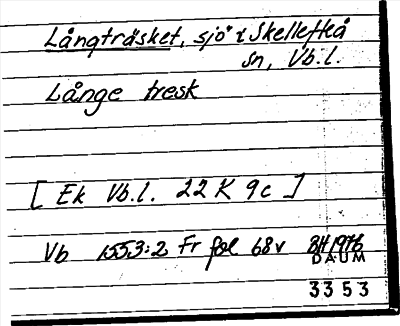 Långträsket, sjö i Skellefteå
sn, Vb.l.
Långe tresk
[ Ek Vb.l. 22 K 9c ]
Vb 1553:2 Fr fol 68v BH 1976
DAUM
3353